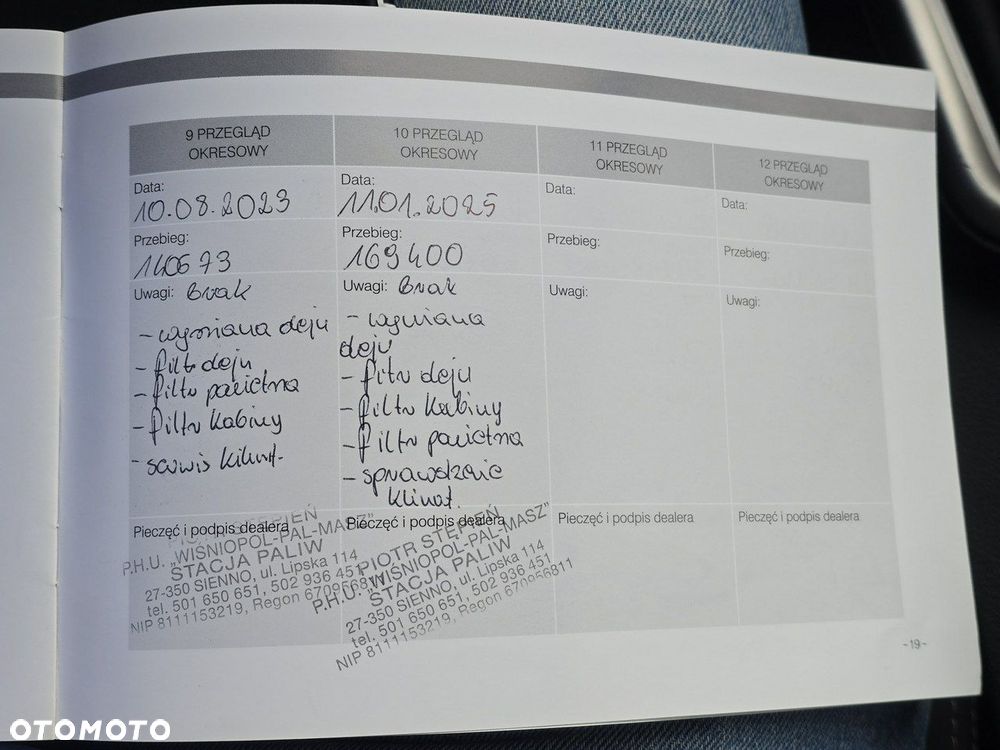 9 PRZEGLĄD
OKRESOWY
Data:
10.08.2023
Przebieg:
140673
Uwagi: Brak
- wymiana oleju
- filtr oleju
- filtr powietrza
- filtr kabiny
- serwis klimat.
Pieczęć i podpis dealera
P.H.U. „WIŚNIOPOL-PAL-MASZ”
STACJA PALIW
27-350 SIENNO, ul. Lipska 114
tel. 501 650 651, 502 936 451
NIP 8111153219, Regon 670956811
10 PRZEGLĄD
OKRESOWY
Data:
11.01.2025
Przebieg:
169400
Uwagi: Brak
- wymiana
oleju
- fitr oleju
- filtr kabiny
- filtr powietrza
- sprawdzenie
klimat.
Pieczęć i podpis dealera
PIOTR STĘPIEŃ
P.H.U. „WIŚNIOPOL-PAL-MASZ”
STACJA PALIW
27-350 SIENNO, ul. Lipska 114
tel. 501 650 651, 502 936 451
NIP 8111153219, Regon 670956811
11 PRZEGLĄD
OKRESOWY
Data:
Przebieg:
Uwagi:
Pieczęć i podpis dealera
12 PRZEGLĄD
OKRESOWY
Data:
Przebieg:
Uwagi:
Pieczęć i podpis dealera
~19~
OTOMOTO